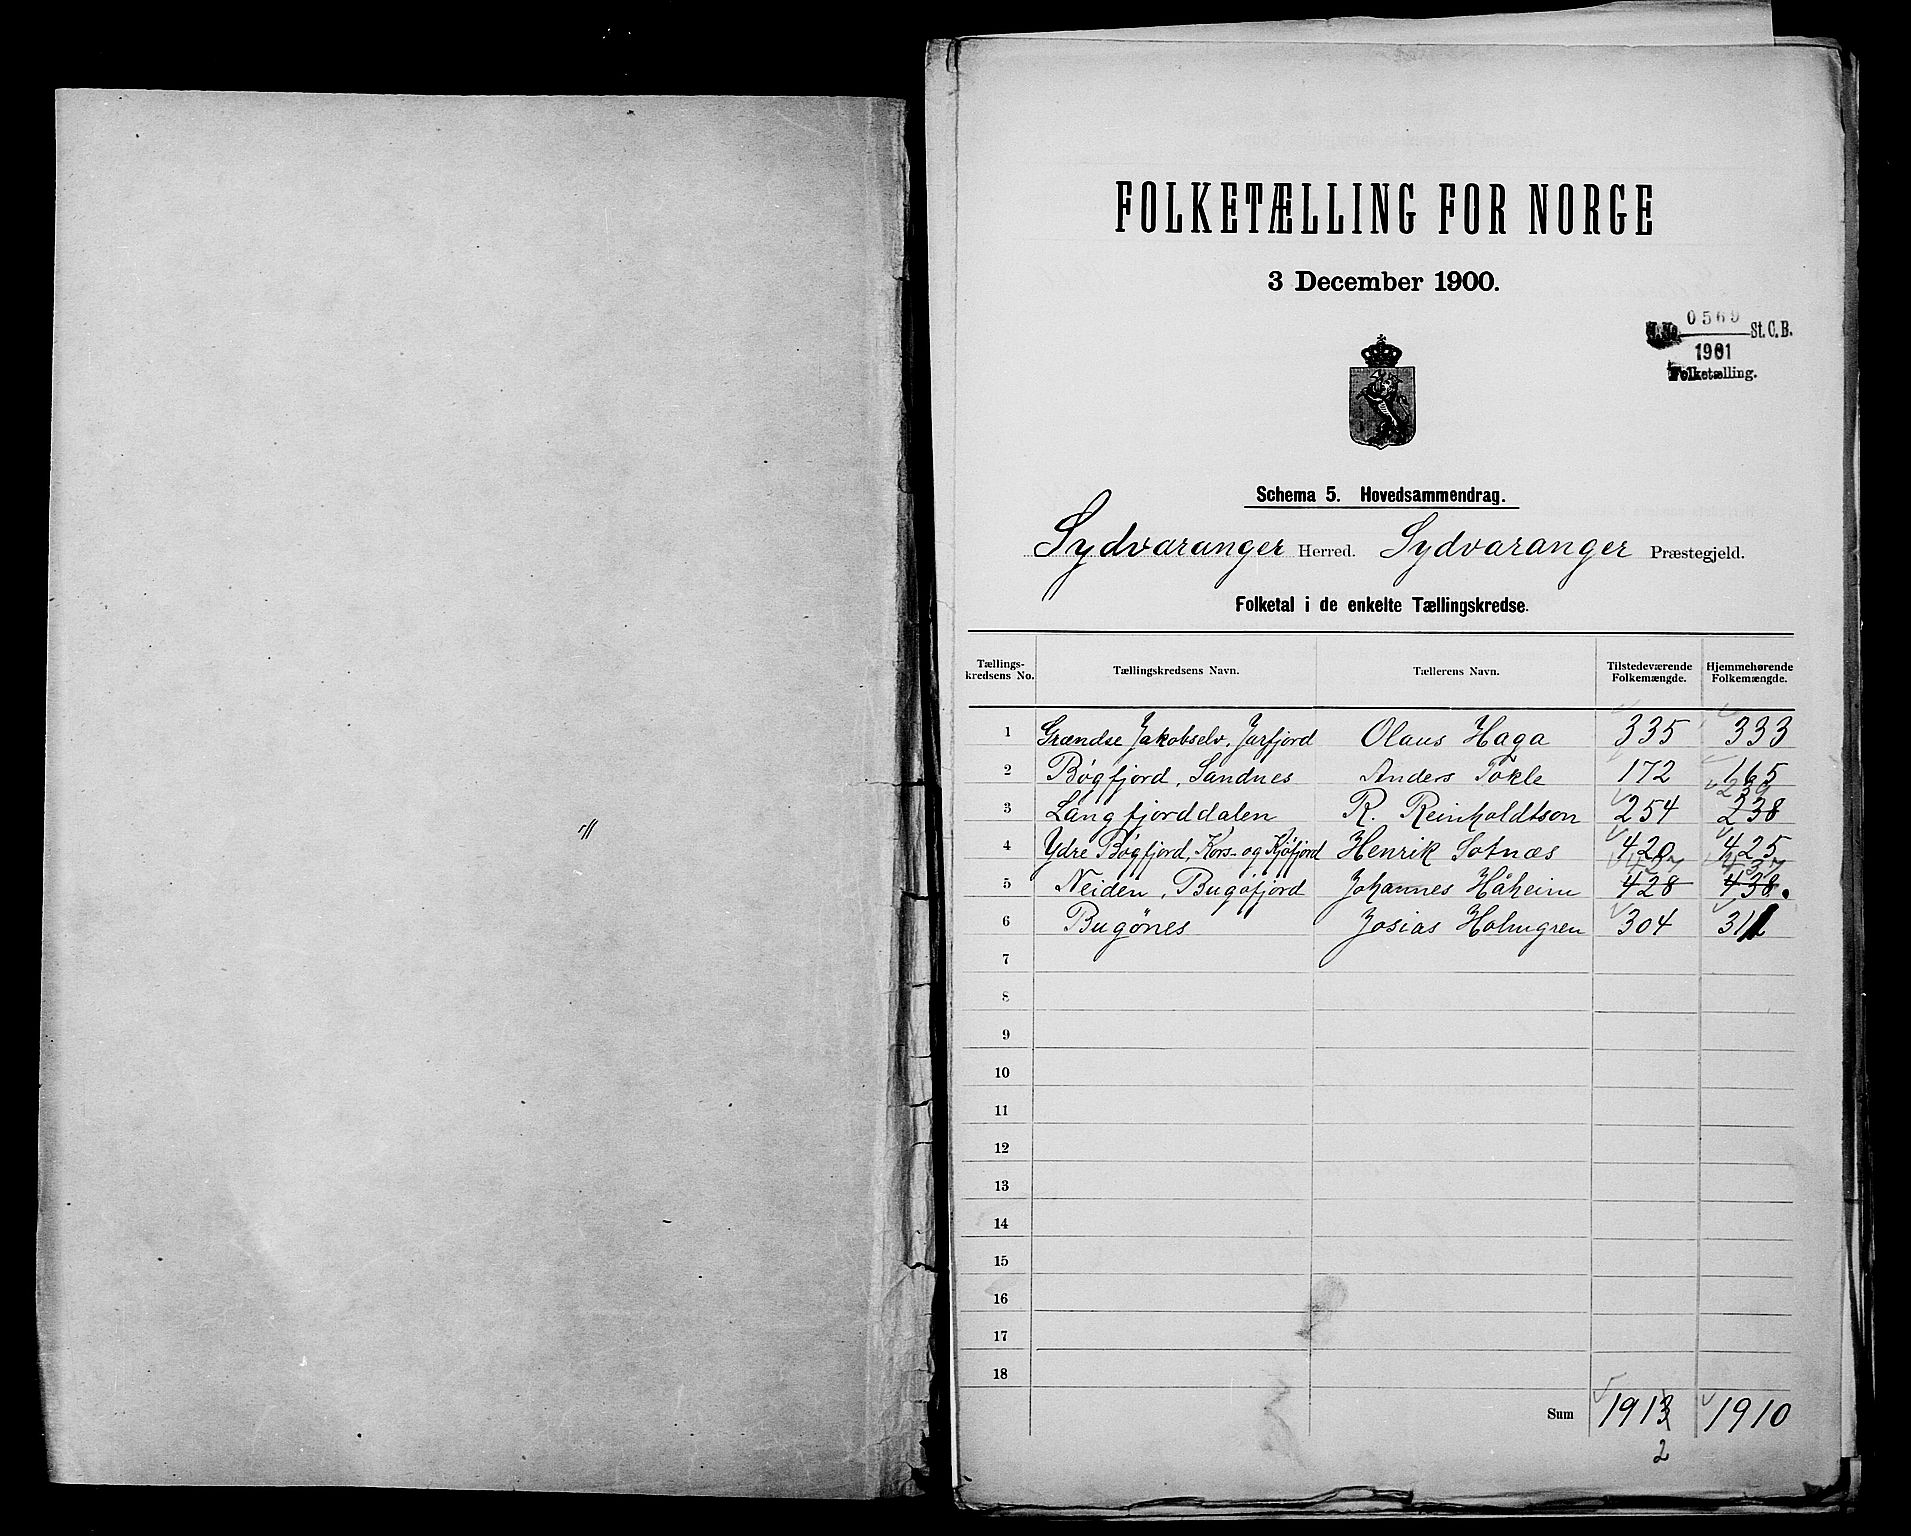 FOLKETÆLLING FOR NORGE
3 December 1900.
0569 St. C. B.
1901
Folketælling.
Schema 5. Hovedsammendrag.
Sydvaranger Herred. Sydvaranger Præstegjeld.
Folketal i de enkelte Tællingskredse.
Tællings-kredsens No. Tællingskredsens Navn. Tællerens Navn. Tilstedeværende Folkemængde. Hjemmehørende Folkemængde.
1 Grændse Jakobselv, Jarfjord Olaus Haga 335 333
2 Bøgfjord, Sandnes Anders Tokle 172 165
239
3 Langfjorddalen R. Reinholdtson 254 238
4 Ydre Bøgfjord, Kors- og Kjøfjord Henrik Sotnæs 420 425
427 437
5 Neiden, Bugøfjord Johannes Håheim 428 438.
6 Bugønes Josias Holmgren 304 311
7
8
9
10
11
12
13
14
15
16
17
18
Sum 1913 1910
2